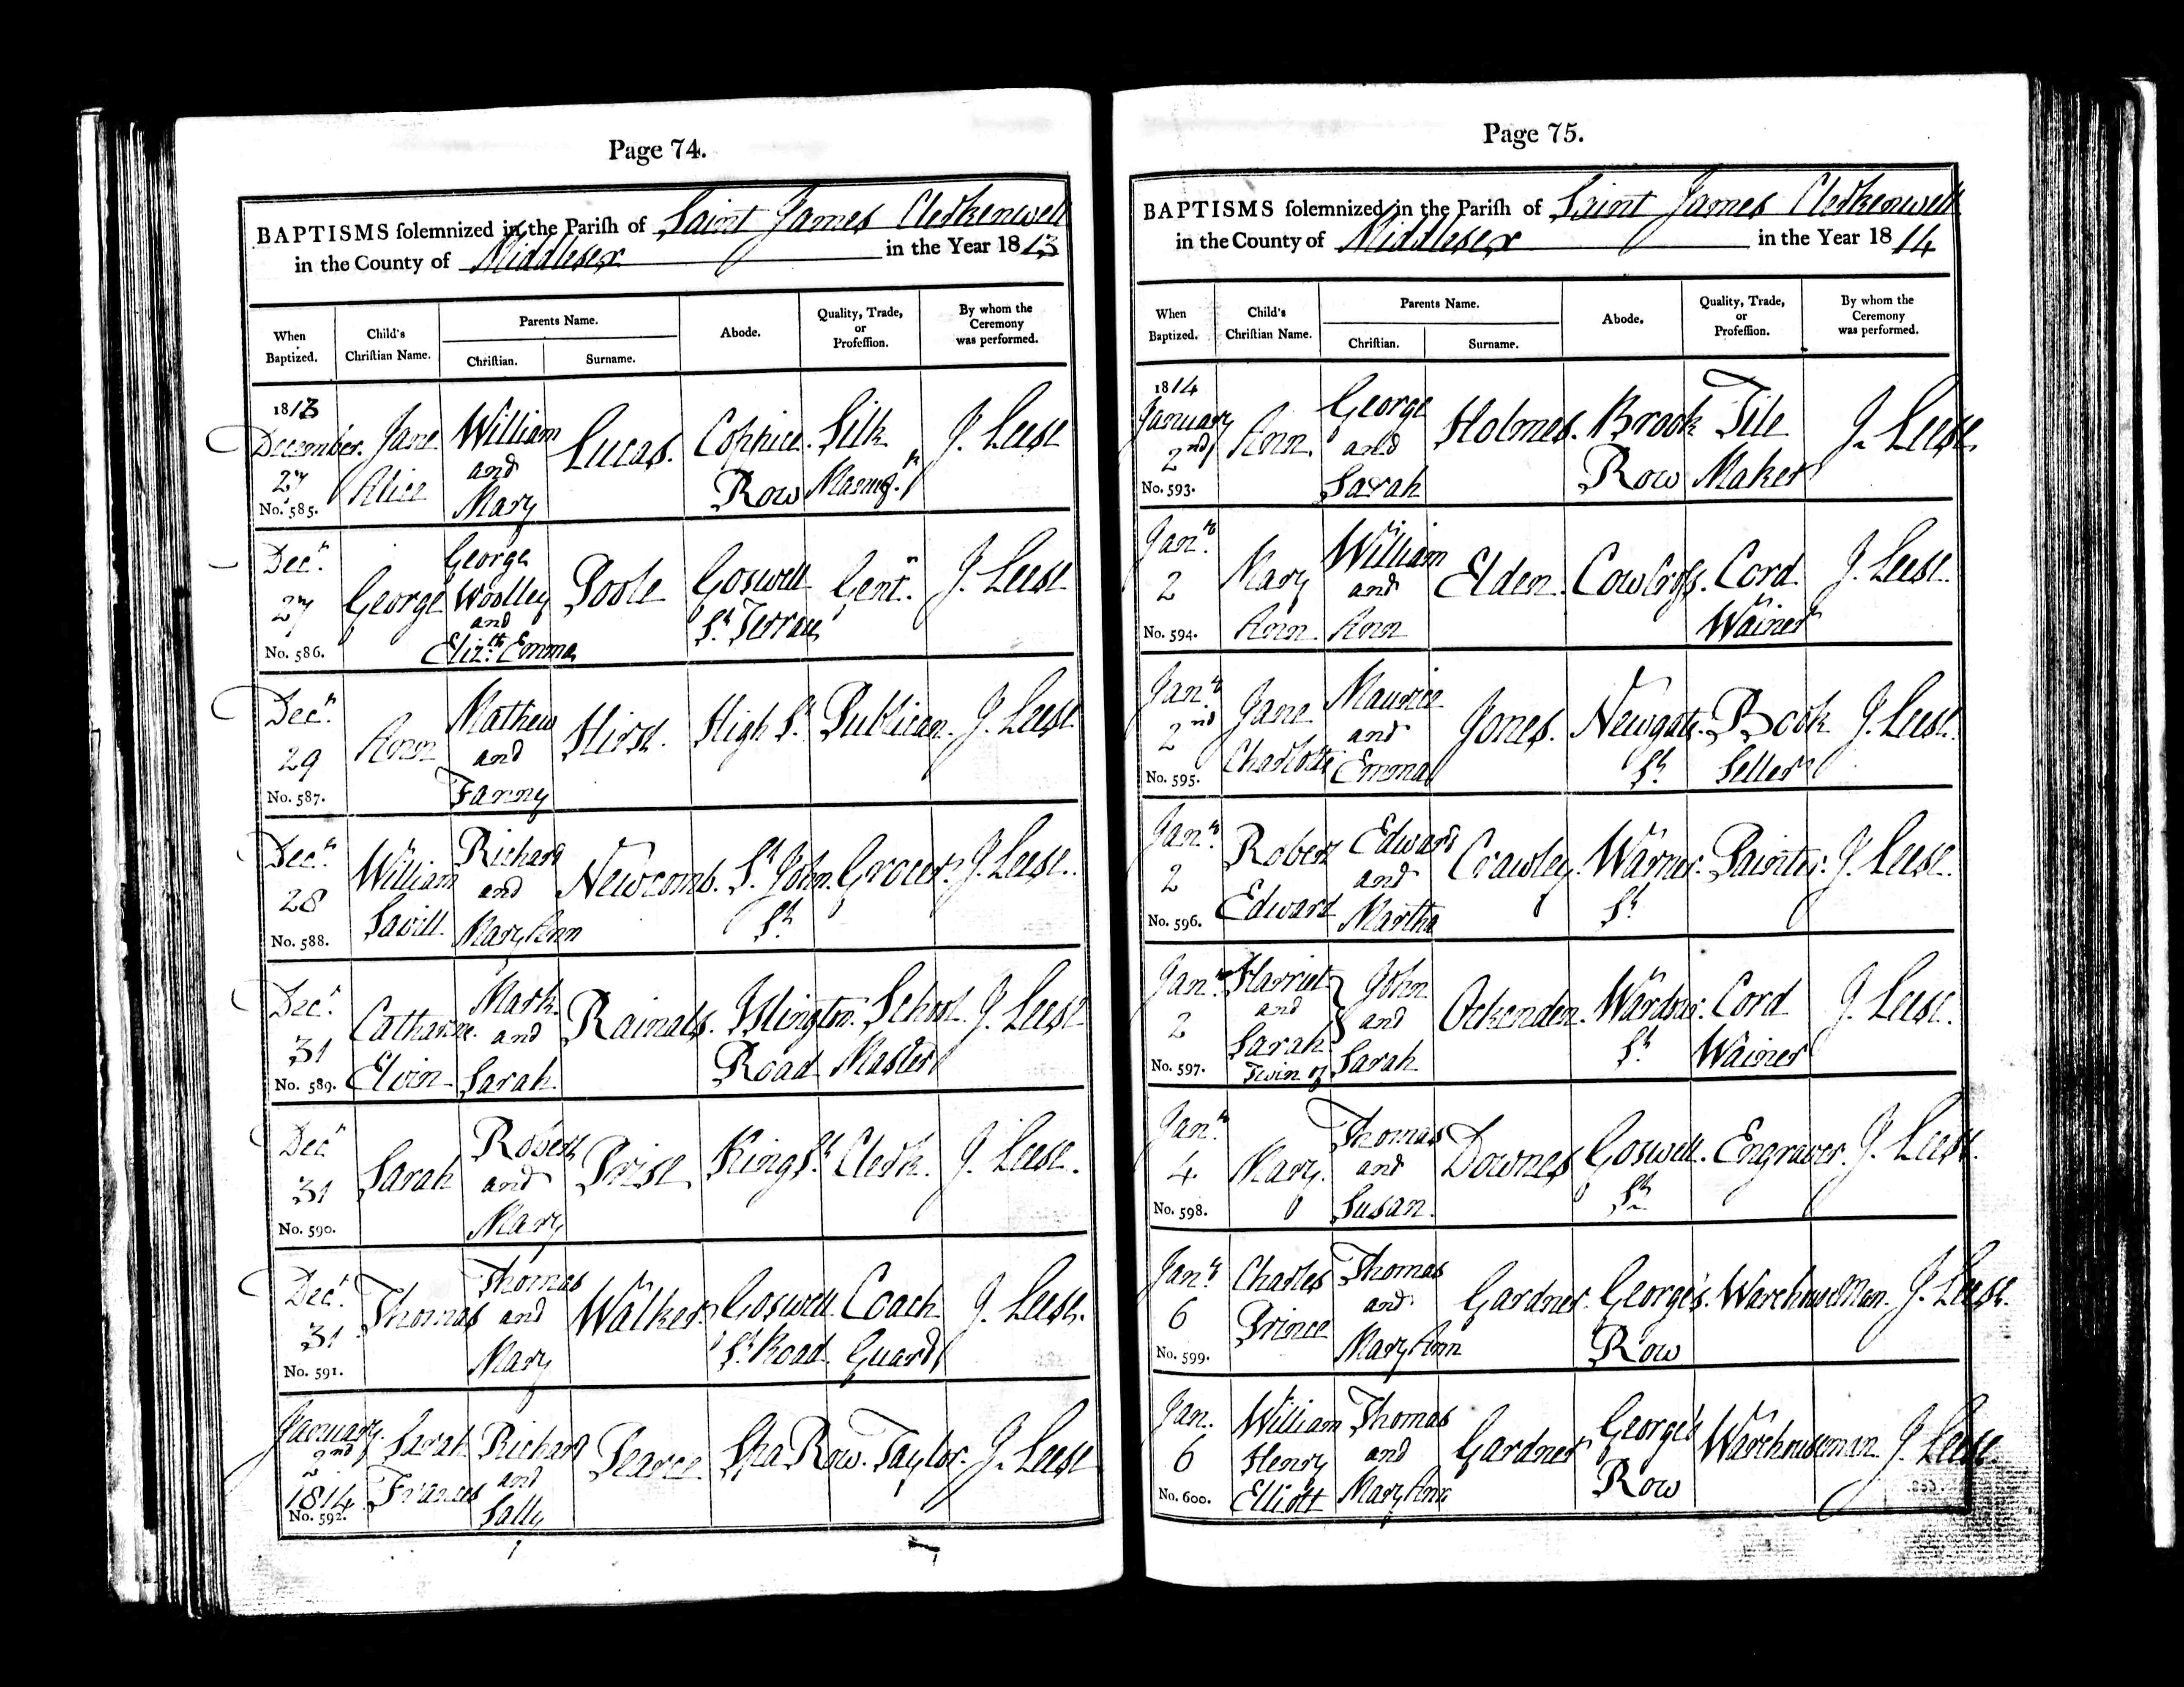 Page 74.
BAPTISMS solemnized in the Parish of Saint James Clerkenwell
in the County of Middlesex in the Year 1813
When Baptized.
Child's Christian Name.
Parents Name.
Christian.
Surname.
Abode.
Quality, Trade, or Profession.
By whom the Ceremony was performed.
1813
December 27 No. 585.
Jane Alice
William and Mary
Lucas.
Coppice Row
Silk
J. Leese
Decr. 27 No. 586.
George
George Woolley and Elizth. Emma
Poole
Goswell St. Terrace
Gent.
J. Leese
Decr. 29 No. 587.
Ann
Mathew and Fanny
Hirst.
High St.
Publican.
J. Leese
Decr. 28 No. 588.
William Savill
Richard and Mary Ann
Newcomb.
St. John St.
Grocer.
J. Leese.
Decr. 31 No. 589.
Catharine Elvin
Mark and Sarah
Rainals.
Islington Road
School Master
J. Leese
Decr 31 No. 590.
Sarah
Robert and Mary
Prise
King St.
Clerk.
J. Leese.
Decr. 31 No. 591.
Thomas
Thomas and Mary
Walker
Goswell St. Road
Coach Guard
J. Leese.
January 2nd 1814 No. 592.
Sarah Frances
Richard and Sally
Pearce
Spa Row.
Taylor.
J. Leese
Page 75.
BAPTISMS solemnized in the Parish of Saint James Clerkenwell
in the County of Middlesex in the Year 1814
When Baptized.
Child's Christian Name.
Parents Name.
Christian.
Surname.
Abode.
Quality, Trade, or Profession.
By whom the Ceremony was performed.
1814
January 2nd No. 593.
Ann.
George and Sarah
Holmes.
Brook Row
Tile Maker
J. Leese
Jany. 2 No. 594.
Mary Ann
William and Ann
Elden.
Cow Cross.
Cord Wainer
J. Leese.
Jany. 2nd No. 595.
Jane Charlotte
Maurice and Emma
Jones.
Newgate St.
Book Seller
J. Leese.
Jany. 2 No. 596.
Robert Edward
Edward and Martha
Crawley.
Warner St.
Painter.
J. Leese.
Jany. 2 No. 597.
Harriet and Sarah Twin of
John and Sarah
Ockenden.
Wardour St.
Cord Wainer
J. Leese.
Jany. 4 No. 598.
Mary.
Thomas and Susan.
Downes
Goswell St.
Engraver.
J. Leese.
Jany. 6 No. 599.
Charles Prince
Thomas and Mary Ann
Gardner.
George's Row
Warehouseman.
J. Leese.
Jan. 6 No. 600.
William Henry Elliott
Thomas and Mary Ann
Gardner
George's Row
Warehouseman
J. Leese